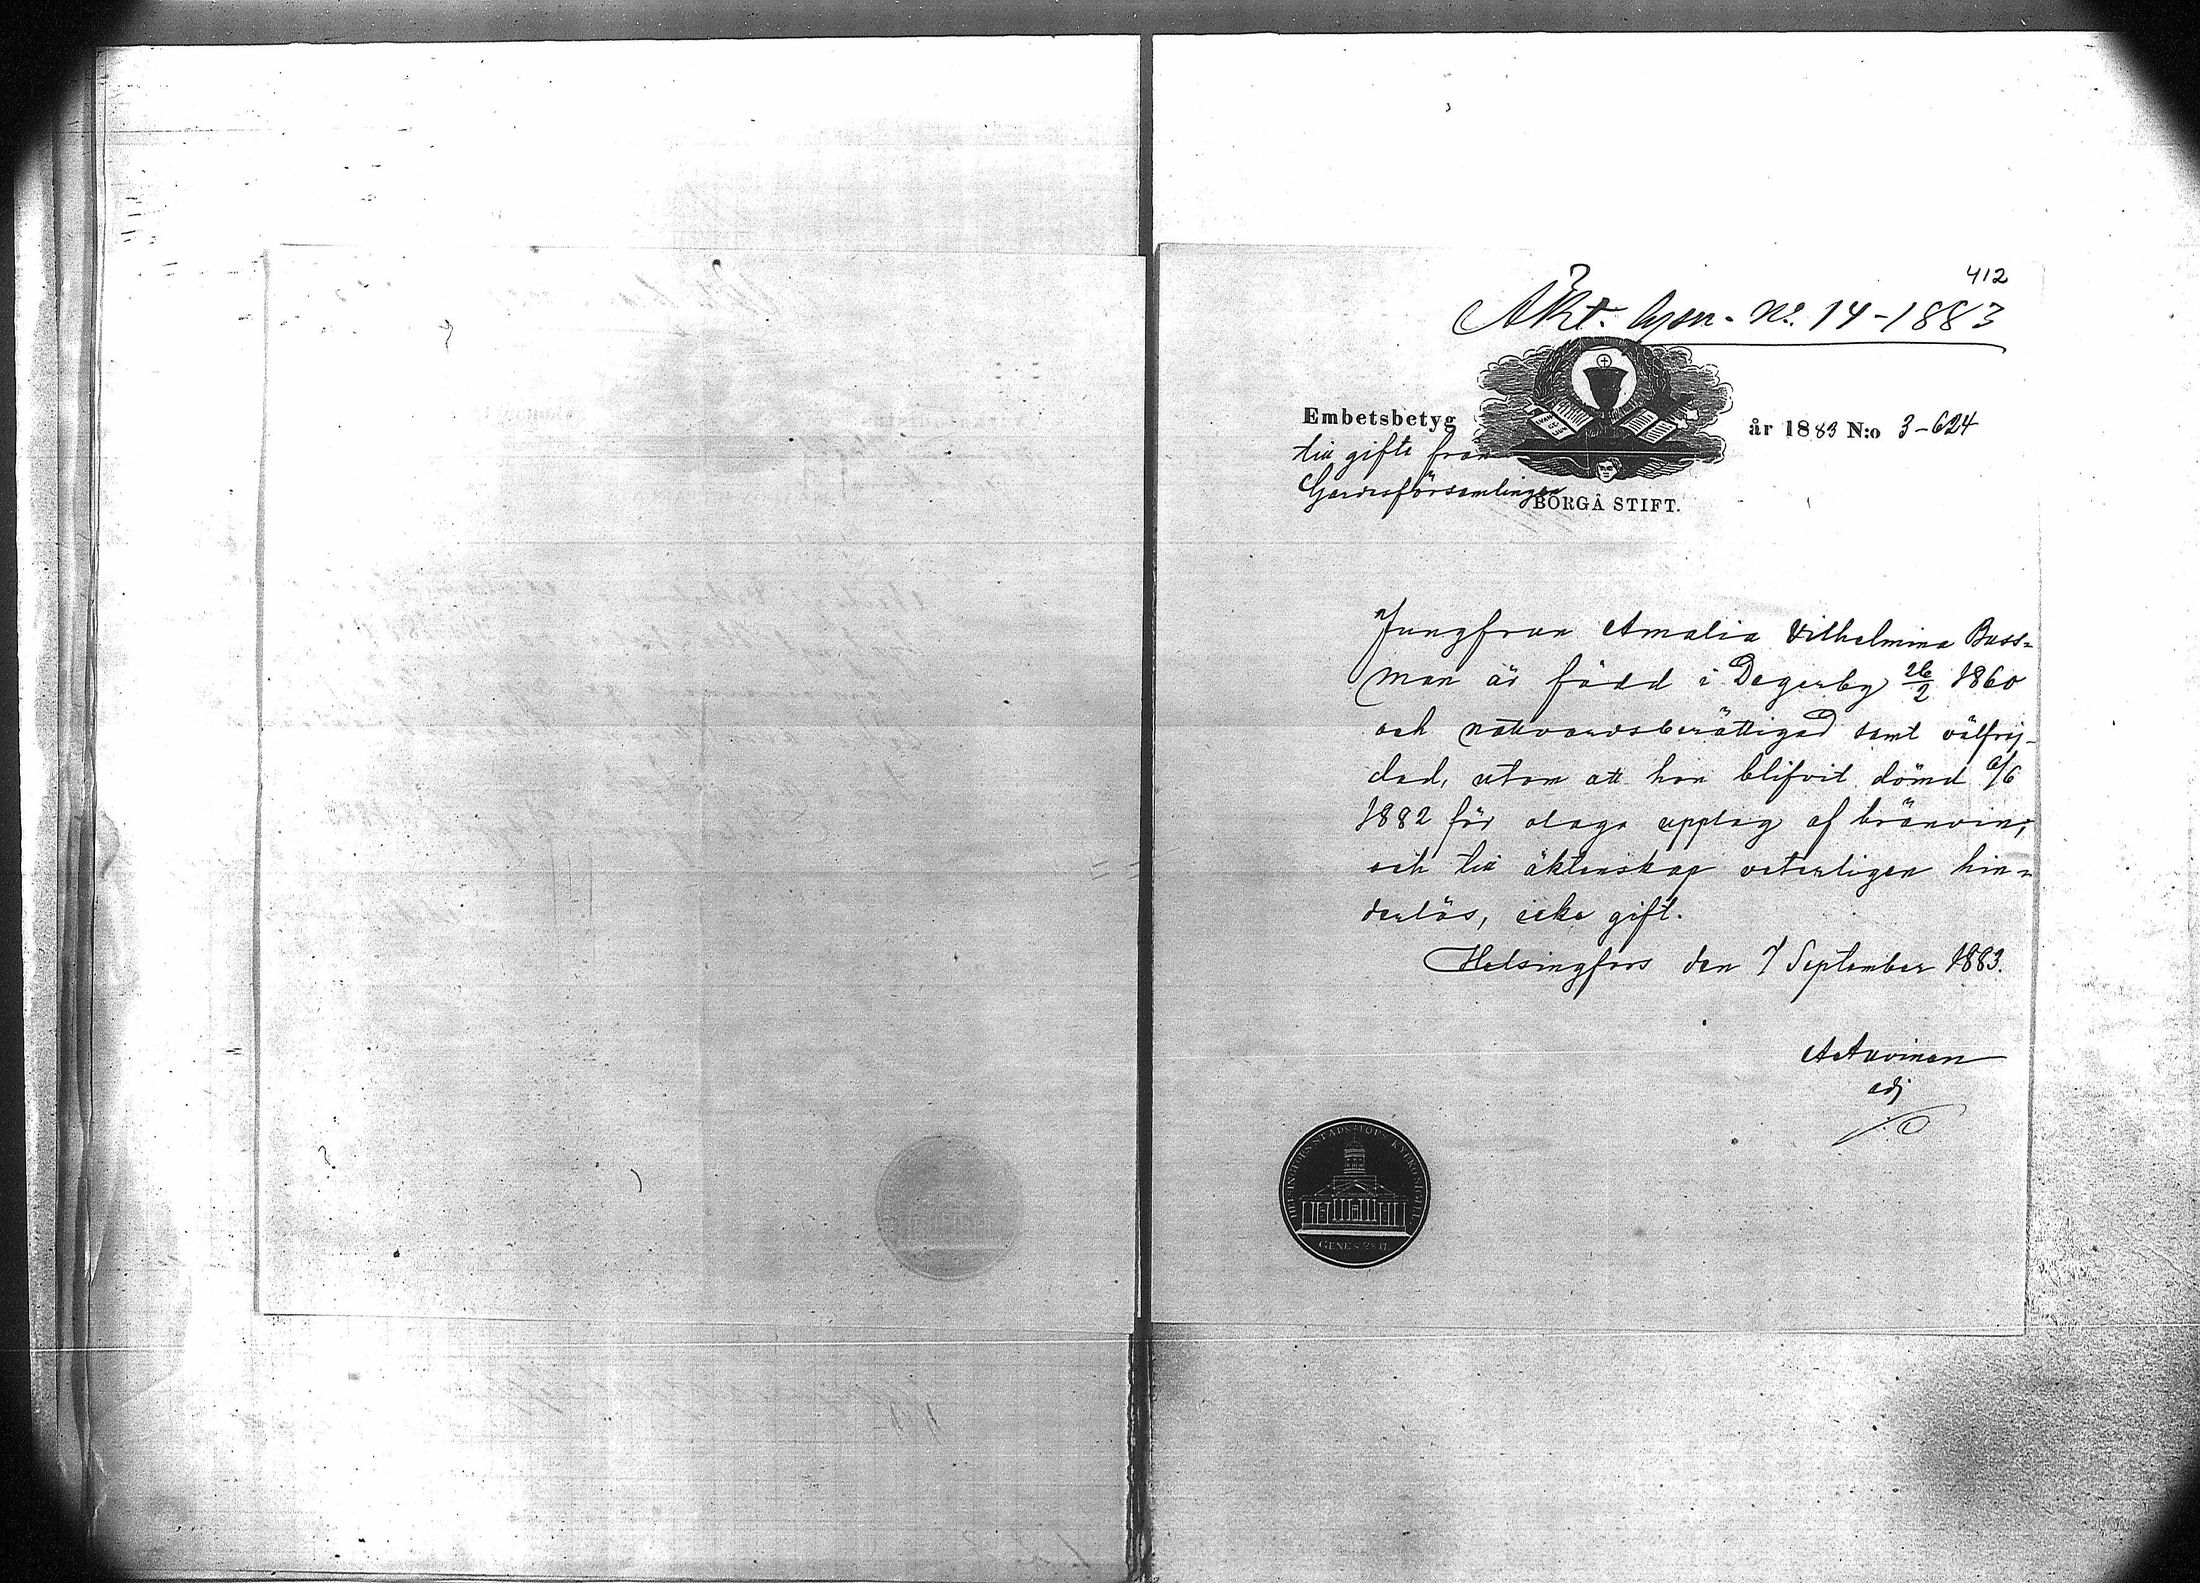 412
Äkt. lysn. No. 14-1883
Embetsbetyg
år 1883 N:o 3-624
till gifte från
Gardesförsamlingen
BORGÅ STIFT.
Jungfrun Amalia Vilhelmina Buss-
man är född i Degerby 26/2 1860
och nattvardsberättigad samt välfräj-
dad, utom att hon blifvit dömd 6/6
1882 för olaga upplag af bränvin,
och till äktenskap veterligen hin-
derlös, icke gift.
Helsingfors den 7 September 1883.
A Auvinen
adj
GENES 28 17